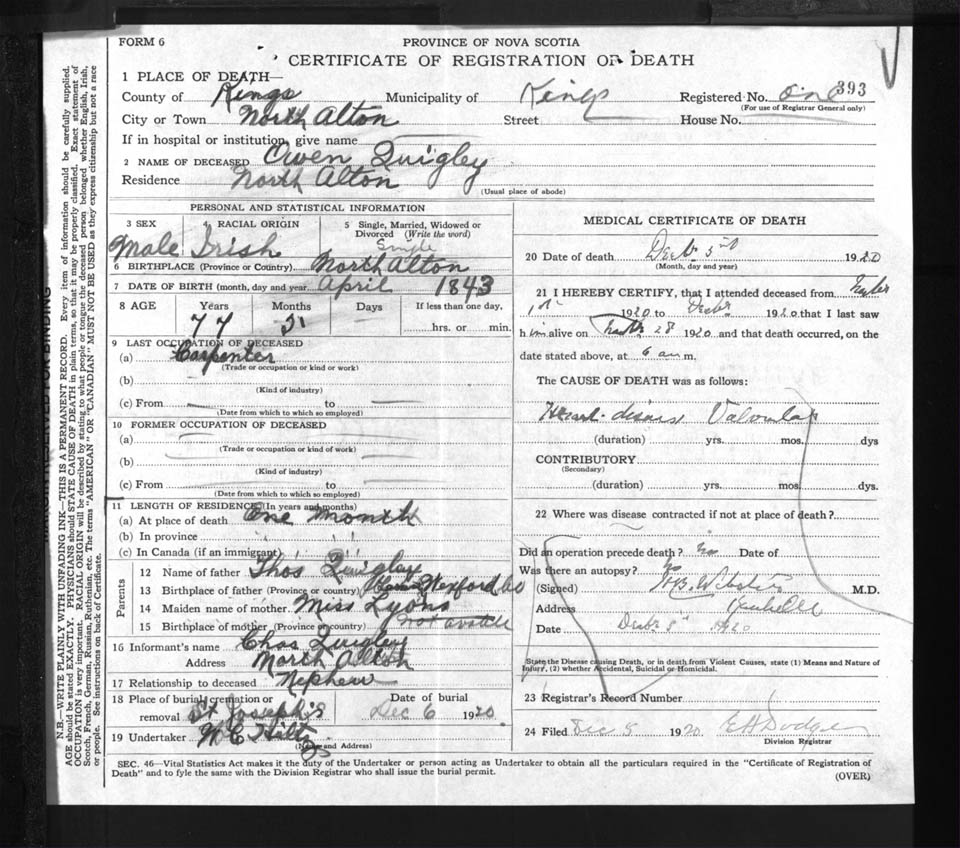 FORM 6
PROVINCE OF NOVA SCOTIA
CERTIFICATE OF REGISTRATION OF DEATH
1 PLACE OF DEATH—
County of Kings Municipality of Kings Registered No. one 393
(For use of Registrar General only)
City or Town North Alton Street House No.
If in hospital or institution, give name
2 NAME OF DECEASED Owen Quigley
Residence North Alton
(Usual place of abode)
PERSONAL AND STATISTICAL INFORMATION
3 SEX 4 RACIAL ORIGIN 5 Single, Married, Widowed or Divorced (Write the word)
Male Irish Single
6 BIRTHPLACE (Province or Country) North Alton
7 DATE OF BIRTH (month, day and year) April 1843
8 AGE Years Months Days If less than one day,
77 hrs. or min.
9 LAST OCCUPATION OF DECEASED
(a) Carpenter
(Trade or occupation or kind or work)
(b)
(Kind of industry)
(c) From to
(Date from which to which so employed)
10 FORMER OCCUPATION OF DECEASED
(a)
(Trade or occupation or kind of work)
(b)
(Kind of industry)
(c) From to
(Date from which to which so employed)
11 LENGTH OF RESIDENCE (In years and months)
(a) At place of death One month
(b) In province
(c) In Canada (if an immigrant)
Parents
12 Name of father Thos Quigley
13 Birthplace of father (Province or country) Wexford Co
14 Maiden name of mother Miss Lyons
15 Birthplace of mother (Province or country) not
16 Informant's name Chas Quigley
Address North Alton
17 Relationship to deceased Nephew
18 Place of burial, cremation or removal St Joseph's Date of burial Dec 6 1920
19 Undertaker W C Hiltz
(Name and Address)
MEDICAL CERTIFICATE OF DEATH
20 Date of death Decbr 5th 1920
(Month, day and year)
21 I HEREBY CERTIFY, that I attended deceased from
1st 1920 to Decbr 1920 that I last saw
him alive on 28 1920 and that death occurred, on the
date stated above, at 6 am m.
The CAUSE OF DEATH was as follows:
Heart disease Valvular
(duration) yrs. mos. dys
CONTRIBUTORY
(Secondary)
(duration) yrs. mos. dys.
22 Where was disease contracted if not at place of death?
Did an operation precede death? no Date of
Was there an autopsy? no
(Signed) Webster M.D.
Address Kentville
Date Decbr 5 1920
State the Disease causing Death, or in death from Violent Causes, state (1) Means and Nature of
Injury, (2) whether Accidental, Suicidal or Homicidal.
23 Registrar's Record Number
24 Filed Dec 5 1920 E H Dodge
Division Registrar
SEC. 46—Vital Statistics Act makes it the duty of the Undertaker or person acting as Undertaker to obtain all the particulars required in the "Certificate of Registration of
Death" and to fyle the same with the Division Registrar who shall issue the burial permit.
(OVER)
N.B.—WRITE PLAINLY WITH UNFADING INK—THIS IS A PERMANENT RECORD. Every item of information should be carefully supplied.
AGE should be stated EXACTLY. PHYSICIANS should STATE CAUSE OF DEATH in plain terms, so that it may be properly classified. Exact statement of
OCCUPATION is very important. RACIAL ORIGIN will be described by stating to what people or tongue the deceased person belonged whether English, Irish,
Scotch, French, German, Russian, Ruthenian, etc. The terms "AMERICAN" OR "CANADIAN" MUST NOT BE USED as they express citizenship but not a race
or people. See instructions on back of Certificate.